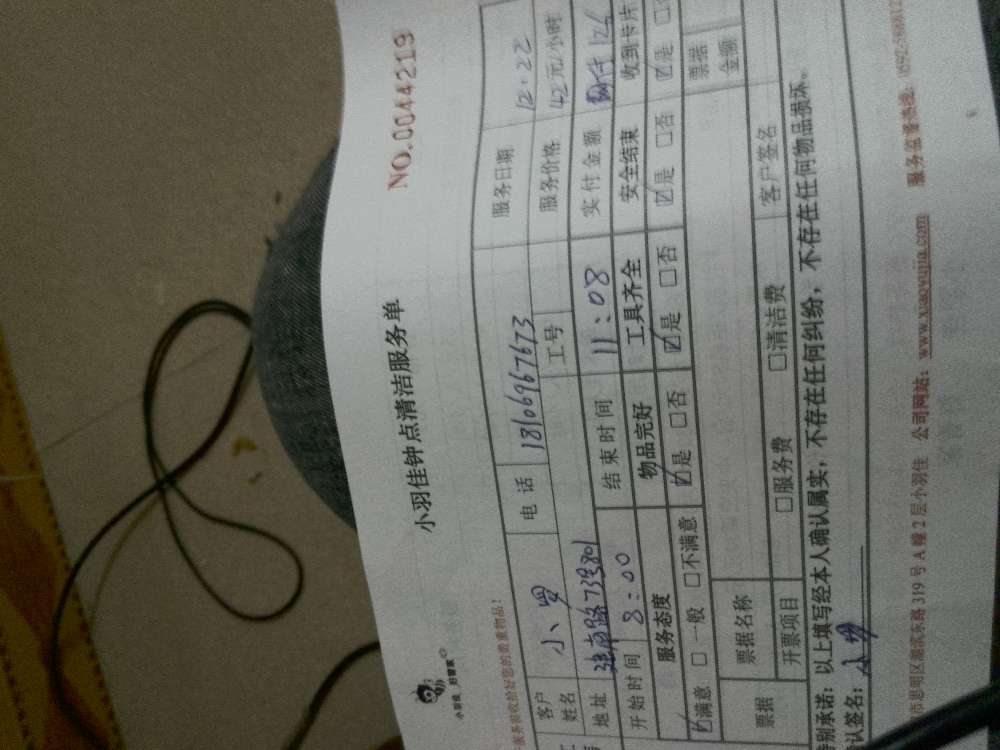 小羽佳 好管家
小羽佳钟点清洁服务单
NO.0044219
客户姓名 小 罗 电话 18106967673 服务日期 12.22
地址 工号 服务价格 42元/小时
开始时间 8:00 结束时间 11:08 实付金额
服务态度 物品完好 工具齐全 安全结束 收到卡片
☑满意 □一般 □不满意 ☑是 □否 ☑是 □否 ☑是 □否 ☑是
票据 票据名称 票据金额
开票项目 □服务费 □清洁费 客户签名
别承诺：以上填写经本人确认属实，不存在任何纠纷，不存在任何物品损坏。
认签名：小罗
市思明区湖滨东路 319 号 A 幢 2 层小羽佳 公司网站：www.xiaoyujia.com 服务监督热线：